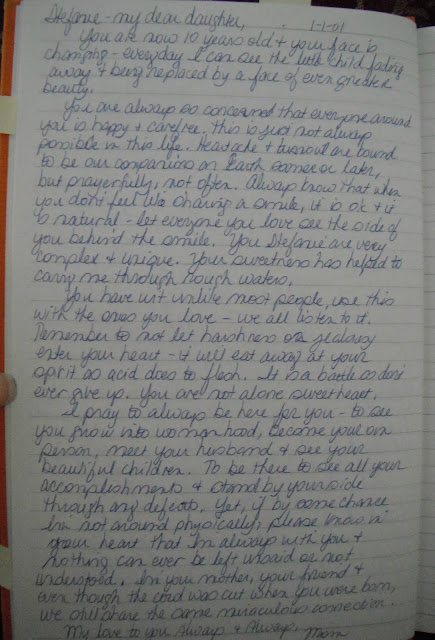 Stefanie - my dear daughter, 1-1-01
You are now 10 years old + your face is
changing - everyday I can see the little child fading
away + being replaced by a face of even greater
beauty.
You are always so concerned that everyone around
you is happy + carefree. this is just not always
possible in this life. Heartache + burnout are bound
to be our companions on Earth sooner or later,
but prayerfully, not often. Always know that when
you don't feel like sharing a smile, it is o.k + it
is natural - let everyone you love see the side of
you behind the smile. You Stefanie are very
complex + unique. Your sweetness has helped to
carry me through rough waters.
You have wit unlike most people, use this
with the ones you love - we all listen to it.
Remember to not let harshness or jealousy
enter your heart - it will eat away at your
spirit as acid does to flesh. It is a battle so don't
ever give up. You are not alone sweetheart.
I pray to always be here for you - to see
you grow into womanhood, become your own
person, meet your husband + see your
beautiful children. To be there to see all your
accomplishments + stand by your side
through any defeats. Yet, if by some chance
I'm not around physically, please know in
your heart that I'm always with you +
nothing can ever be left unpaid or not
understood. I'm your mother, your friend +
even though the cord was cut when you were born,
we still share the same miraculous connection.
My love to you Always + Always, Mom